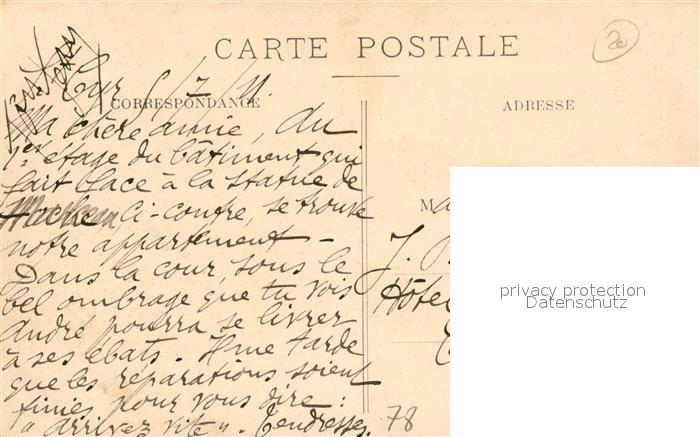 CARTE POSTALE
20
5/7/11.
CORRESPONDANCE
ADRESSE
Ma chère amie, Du
1er étage du bâtiment qui
fait face à la statue de
ci-contre, se trouve
notre appartement -
Dans la cour sous le
bel ombrage que tu vois
André pourra se livrer
à ses ébats. Il me tarde
que les réparations soient
finies pour vous dire :
"arrivez vite". Tendresses.
Ma
J.
Hôte
privacy protection
Datenschutz
78